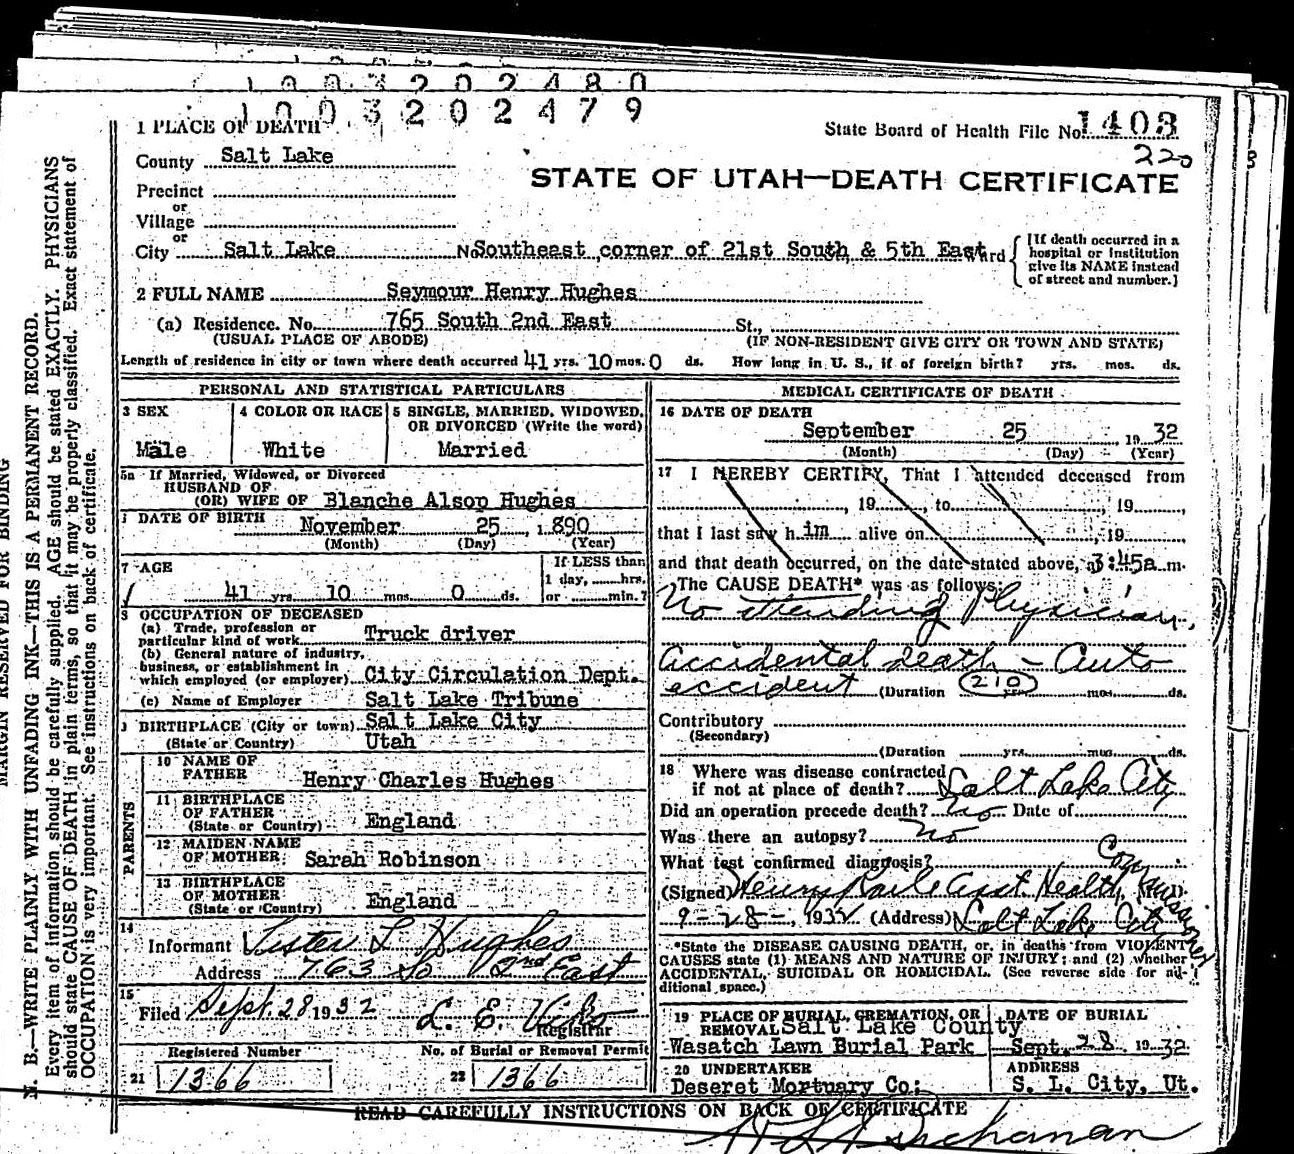 1003202480
1003202479
1 PLACE OF DEATH
State Board of Health File No. 1403
220
County Salt Lake
STATE OF UTAH—DEATH CERTIFICATE
Precinct
or
Village
or
City Salt Lake No Southeast corner of 21st South & 5th East ard
[If death occurred in a hospital or institution give its NAME instead of street and number.]
2 FULL NAME Seymour Henry Hughes
(a) Residence. No. 765 South 2nd East St.,
(USUAL PLACE OF ABODE) (IF NON-RESIDENT GIVE CITY OR TOWN AND STATE)
Length of residence in city or town where death occurred 41 yrs. 10 mos. 0 ds. How long in U. S., if of foreign birth? yrs. mos. ds.
PERSONAL AND STATISTICAL PARTICULARS
3 SEX
Male
4 COLOR OR RACE
White
5 SINGLE, MARRIED, WIDOWED, OR DIVORCED (Write the word)
Married
5a If Married, Widowed, or Divorced
HUSBAND OF
(OR) WIFE OF Blanche Alsop Hughes
DATE OF BIRTH November 25, 1890
(Month) (Day) (Year)
7 AGE
41 yrs. 10 mos. 0 ds.
If LESS than
1 day, hrs.
or min.?
8 OCCUPATION OF DECEASED
(a) Trade, profession or
particular kind of work Truck driver
(b) General nature of industry,
business, or establishment in
which employed (or employer) City Circulation Dept.
(c) Name of Employer Salt Lake Tribune
9 BIRTHPLACE (City or town) Salt Lake City
(State or Country) Utah
PARENTS
10 NAME OF
FATHER Henry Charles Hughes
11 BIRTHPLACE
OF FATHER
(State or Country) England
12 MAIDEN NAME
OF MOTHER Sarah Robinson
13 BIRTHPLACE
OF MOTHER
(State or Country) England
14
Informant Lester L Hughes
Address 763 So 2nd East
15
Filed Sept. 28 1932 L. E.
Registrar
Registered Number
21 1366
No. of Burial or Removal Permit
22 1366
MEDICAL CERTIFICATE OF DEATH
16 DATE OF DEATH
September 25, 1932
(Month) (Day) (Year)
17 I HEREBY CERTIFY, That I attended deceased from
, 19 , to , 19 ,
that I last saw h im alive on , 19
and that death occurred, on the date stated above, at 3:45a m.
The CAUSE DEATH* was as follows:
No attending Physician,
accidental death - Auto
accident (Duration 210 yrs. mos. ds.
Contributory
(Secondary)
(Duration yrs. mos. ds.
18 Where was disease contracted
if not at place of death? Salt Lake City
Did an operation precede death? No Date of
Was there an autopsy? No
What test confirmed diagnosis?
(Signed) Henry Asst. Health Commissioner
9-28-, 1932 (Address) Salt Lake City
*State the DISEASE CAUSING DEATH, or, in deaths from VIOLENT
CAUSES state (1) MEANS AND NATURE OF INJURY; and (2) whether
ACCIDENTAL, SUICIDAL OR HOMICIDAL. (See reverse side for ad-
ditional space.)
19 PLACE OF BURIAL, CREMATION, OR
REMOVAL Salt Lake County
Wasatch Lawn Burial Park
DATE OF BURIAL
Sept. 28 1932
20 UNDERTAKER
Deseret Mortuary Co.
ADDRESS
S. L. City, Ut.
READ CAREFULLY INSTRUCTIONS ON BACK OF CERTIFICATE
Buchanan
MARGIN RESERVED FOR BINDING
N. B.—WRITE PLAINLY WITH UNFADING INK—THIS IS A PERMANENT RECORD.
Every item of information should be carefully supplied. AGE should be stated EXACTLY. PHYSICIANS
should state CAUSE OF DEATH in plain terms, so that it may be properly classified. Exact statement of
OCCUPATION is very important. See instructions on back of certificate.